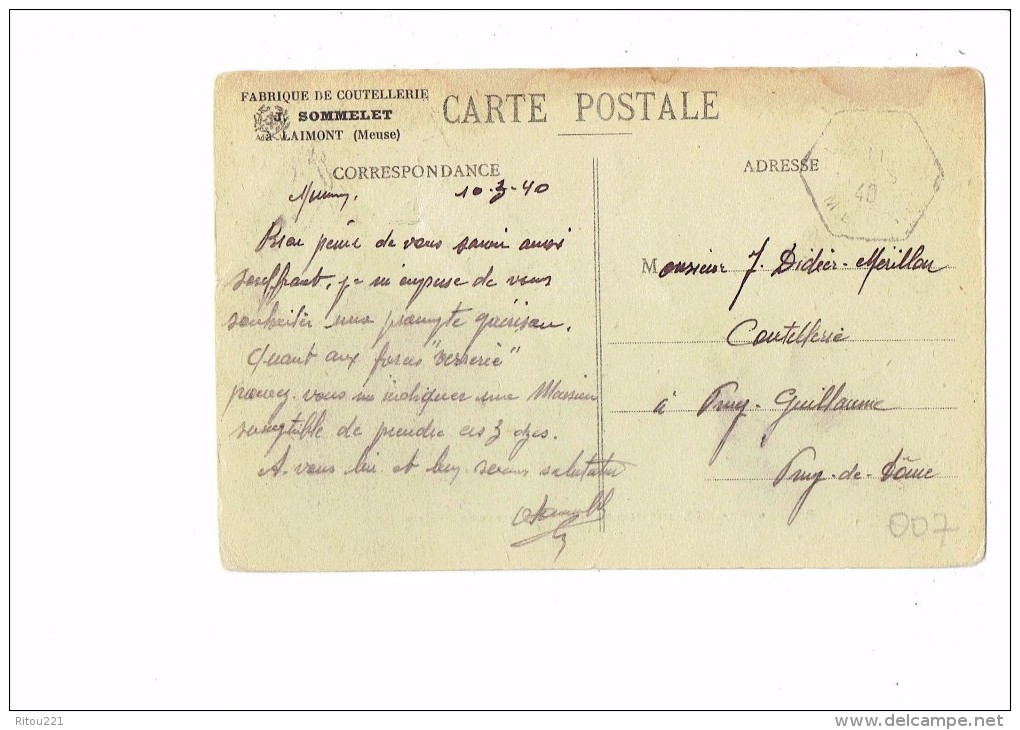 FABRIQUE DE COUTELLERIE
J. SOMMELET
à LAIMONT (Meuse)
CARTE POSTALE
CORRESPONDANCE
ADRESSE
10-3-40
40
Bien peiné de vous savoir aussi
souffrant, je m'empresse de vous
souhaiter une prompte guérison.
Quant aux forces "verrerie"
pouvez-vous m'indiquer une Maison
susceptible de prendre ces 3 dzes.
A vous lire et bien salutations
Monsieur J. Didier-Mérillon
Coutellerie
à Puy-Guillaume
Puy-de-Dôme
007
Ritou221
www.delcampe.net